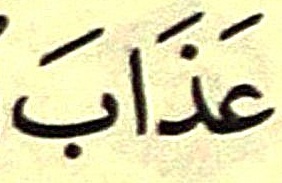 عَذَابَ